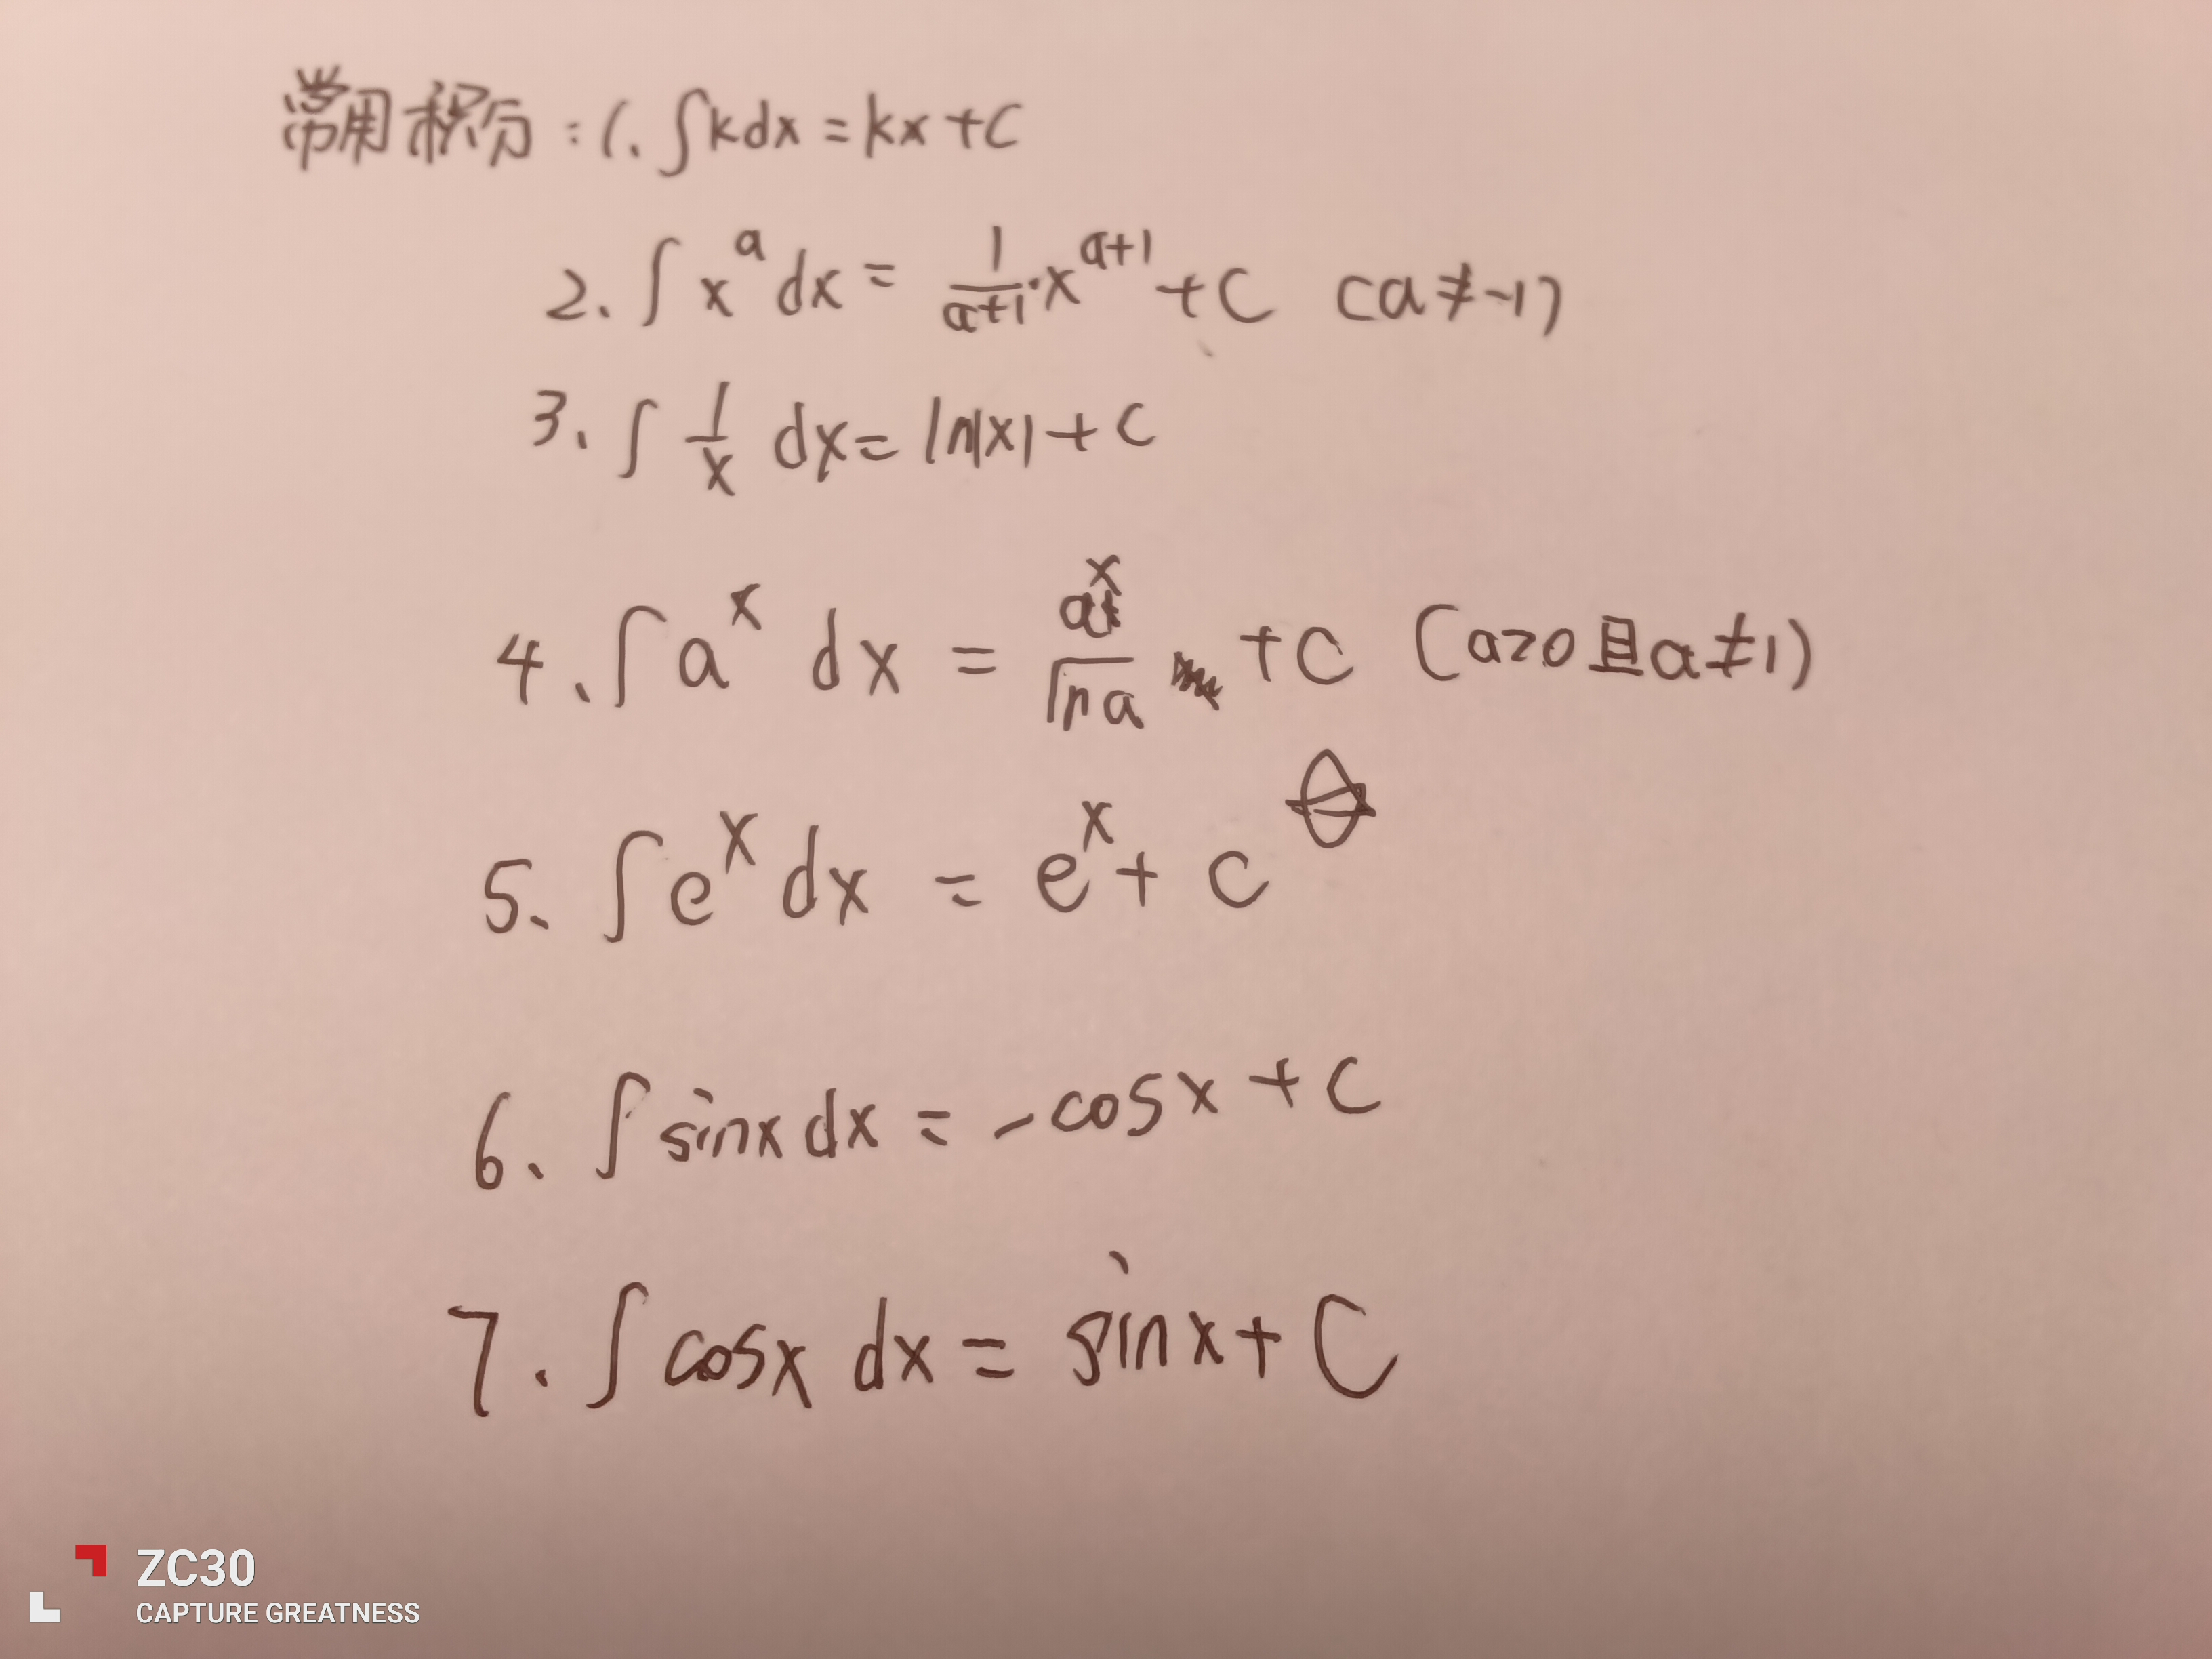 常用积分：1. ∫kdx = kx + C
2. ∫ x^a dx = 1/(a+1)·x^(a+1) + C (a≠-1)
3. ∫ 1/x dx = ln|x| + C
4. ∫ a^x dx = a^x/ln a + C (a>0且a≠1)
5. ∫ e^x dx = e^x + C
6. ∫ sinx dx = -cosx + C
7. ∫ cosx dx = sinx + C
ZC30
CAPTURE GREATNESS